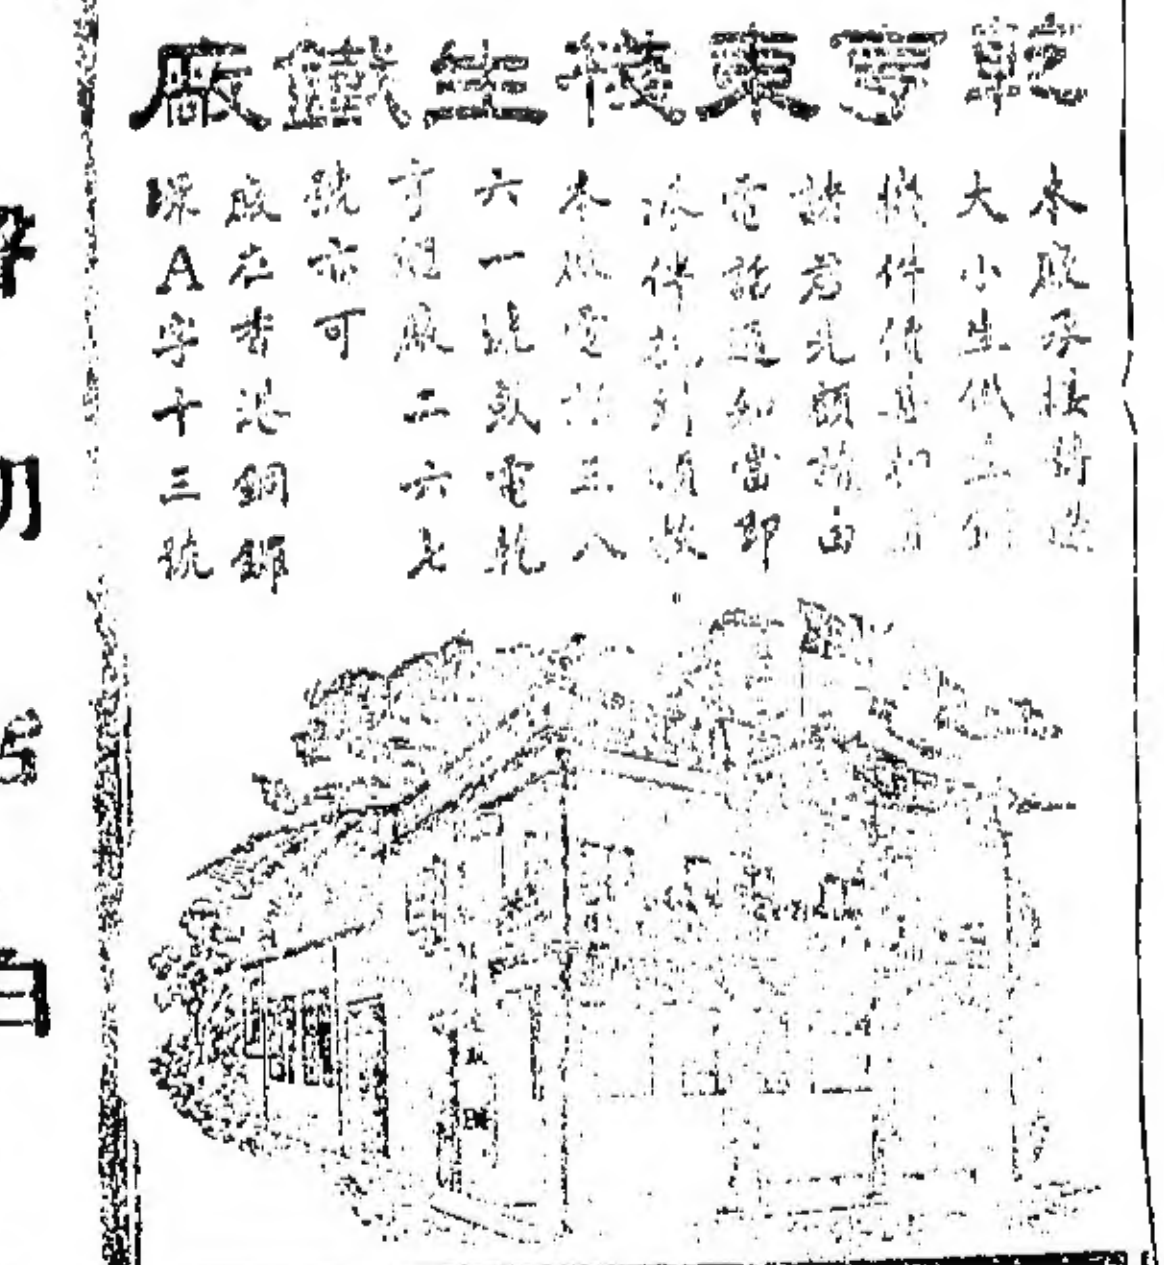 乾亨東棧生鐵廠
本廠承接鑄造
大小生鐵
機件倘
諸君光顧請由
電話通知當即
派伴
本廠電話三八
六一號或電乾
亨祖廠二六七
號亦可
廠在香港銅鑼
環A字十三號